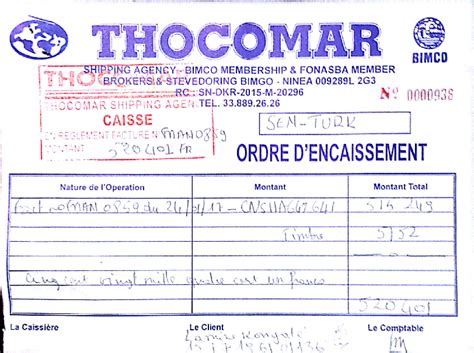 THOCOMAR
BIMCO
SHIPPING AGENCY - BIMCO MEMBERSHIP & FONASBA MEMBER
BROKERS & STEVEDORING BIMGO - NINEA 009289L 2G3
RC : SN-DKR-2015-M-20296
TEL. 33.889.26.26
N° 0000938
THOCOMAR SHIPPING AGEN
CAISSE
EN REGLEMENT FACTURE N° MAN0859
MONTANT 520401 FR
SEN-TURK
ORDRE D'ENCAISSEMENT
Nature de l'Operation Montant Montant Total
Fact no MAN 0859 du 24/01/17 - 515 249
Timbre 5152
Cinq cent vingt mille quatre cent un francs
520401
La Caissière Le Client Le Comptable